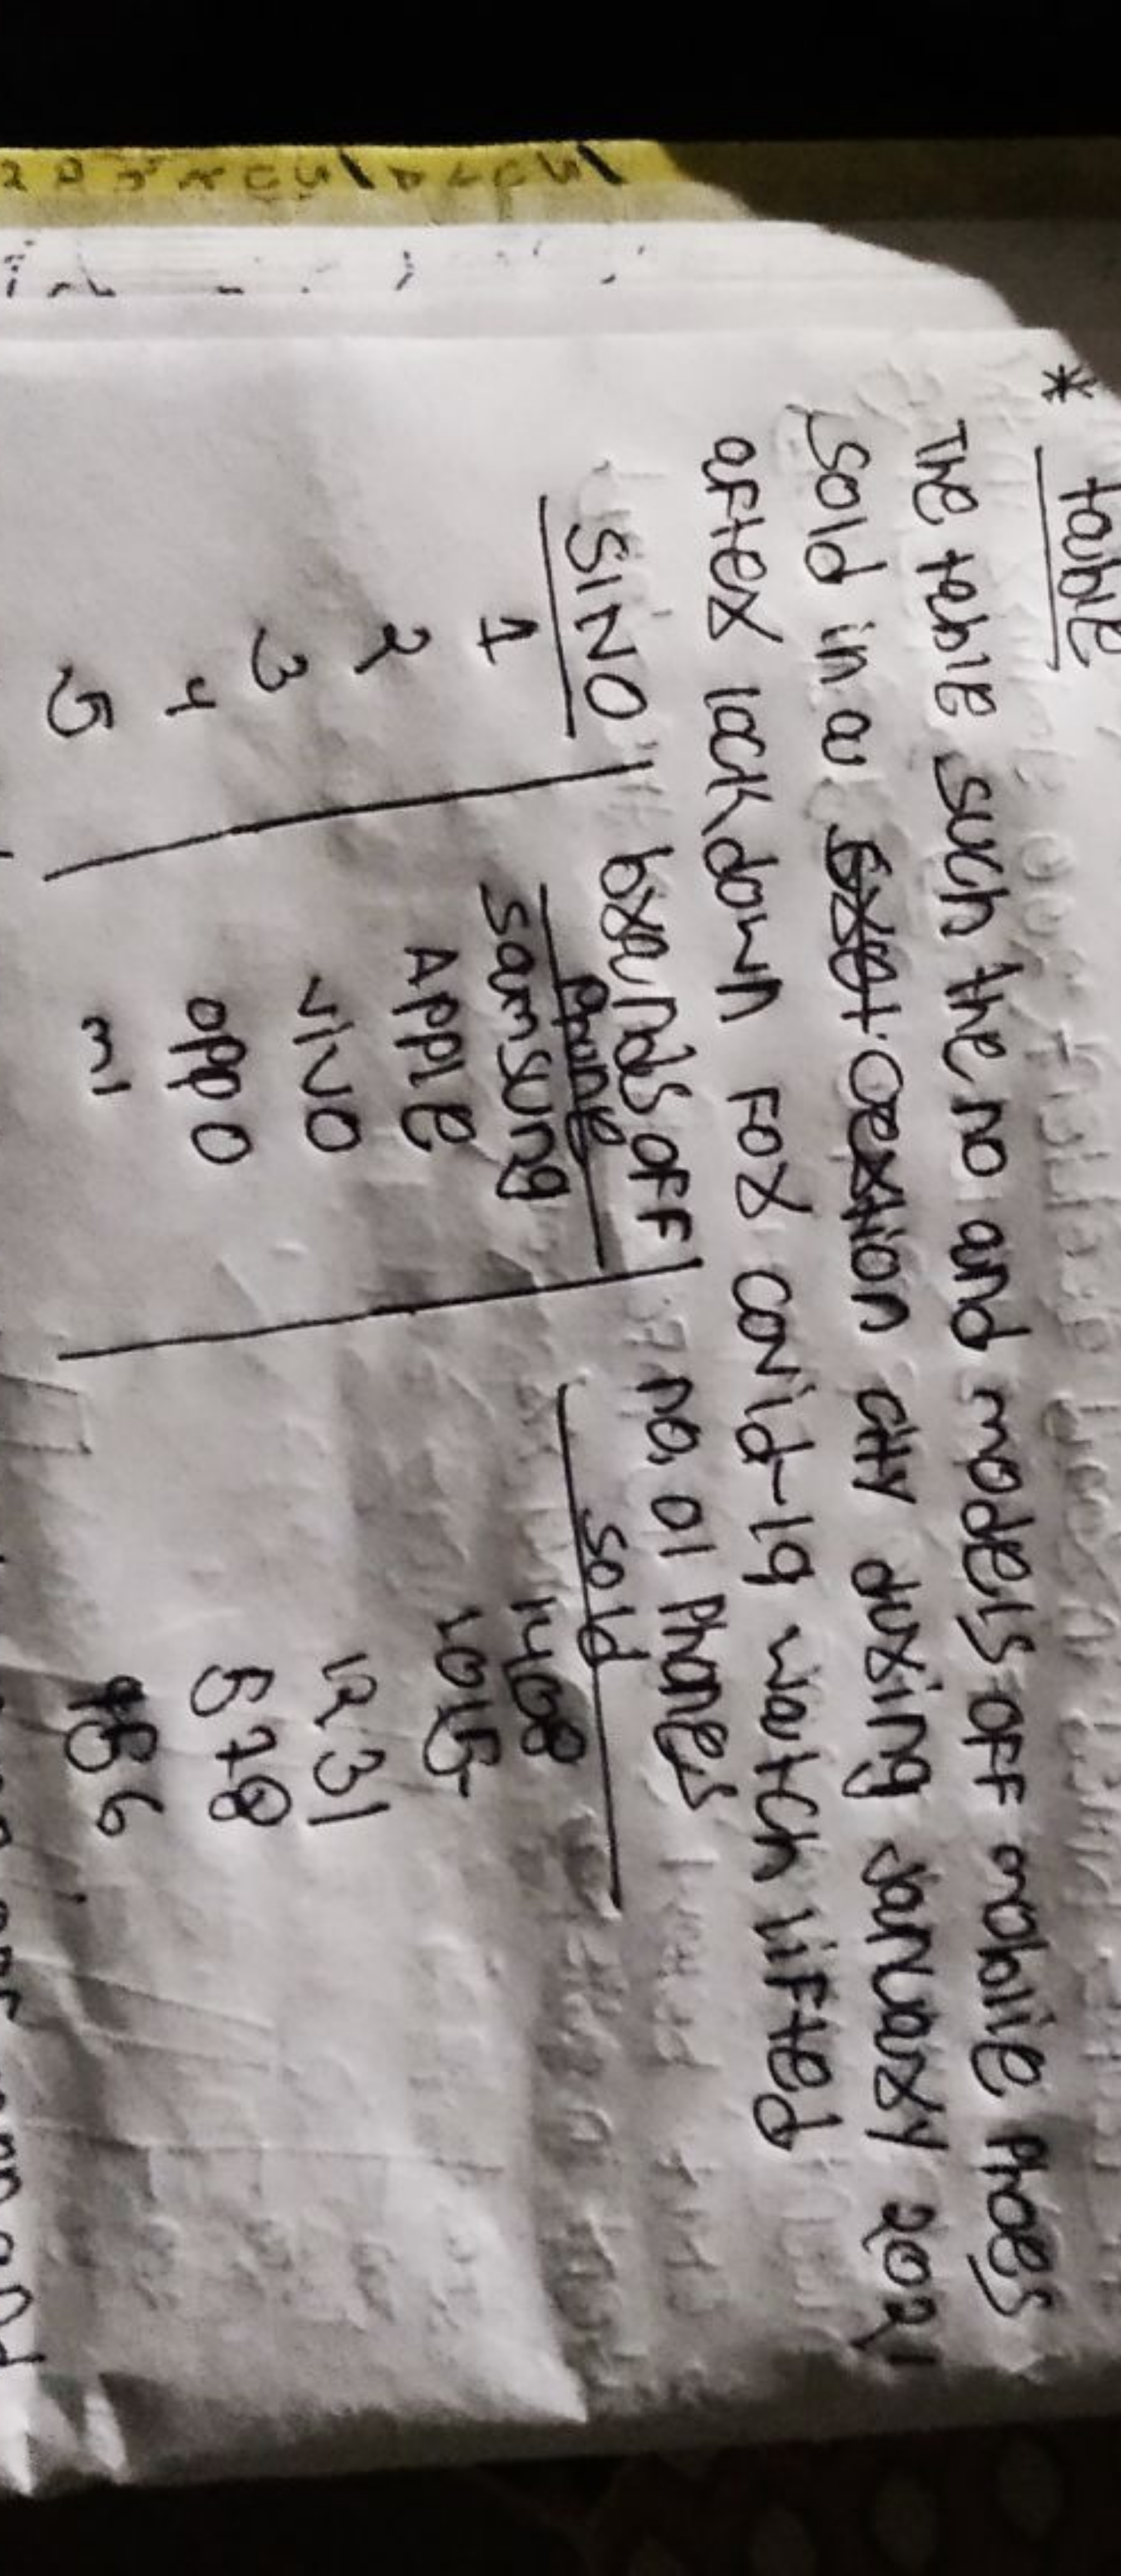 * table
The table such the no and models OFF mobile phoes
sold in a certion city during January 2021
after lockdown For covid-19 watch lifted
SINO brands OFF no. of phones
phone sold
1 samsung 1408
2 Apple 1015
3 vivo 1231
4 oppo 578
5 mi 456